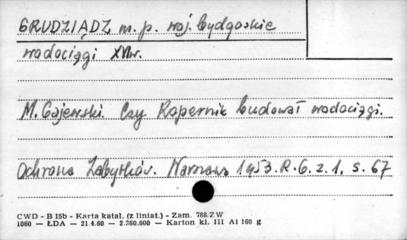 GRUDZIĄDZ m. p. woj. bydgoskie
wodociągi XVIw.
M. Gajewski. Czy Kopernik budował wodociągi.
Ochrona Zabytków. Warszawa 1953. R. 6. z. 1, s. 67
CWD - B 15b - Karta katal. (z liniat.) - Zam. 788/ZW
1060 — ŁDA — 21.4.60 — 2.260.000 — Karton kl. III A1 160 g